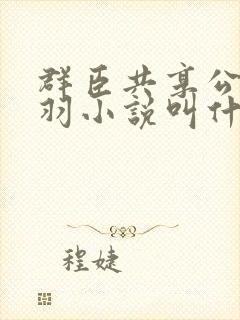 群臣共享公
羽小説叫什
程婕